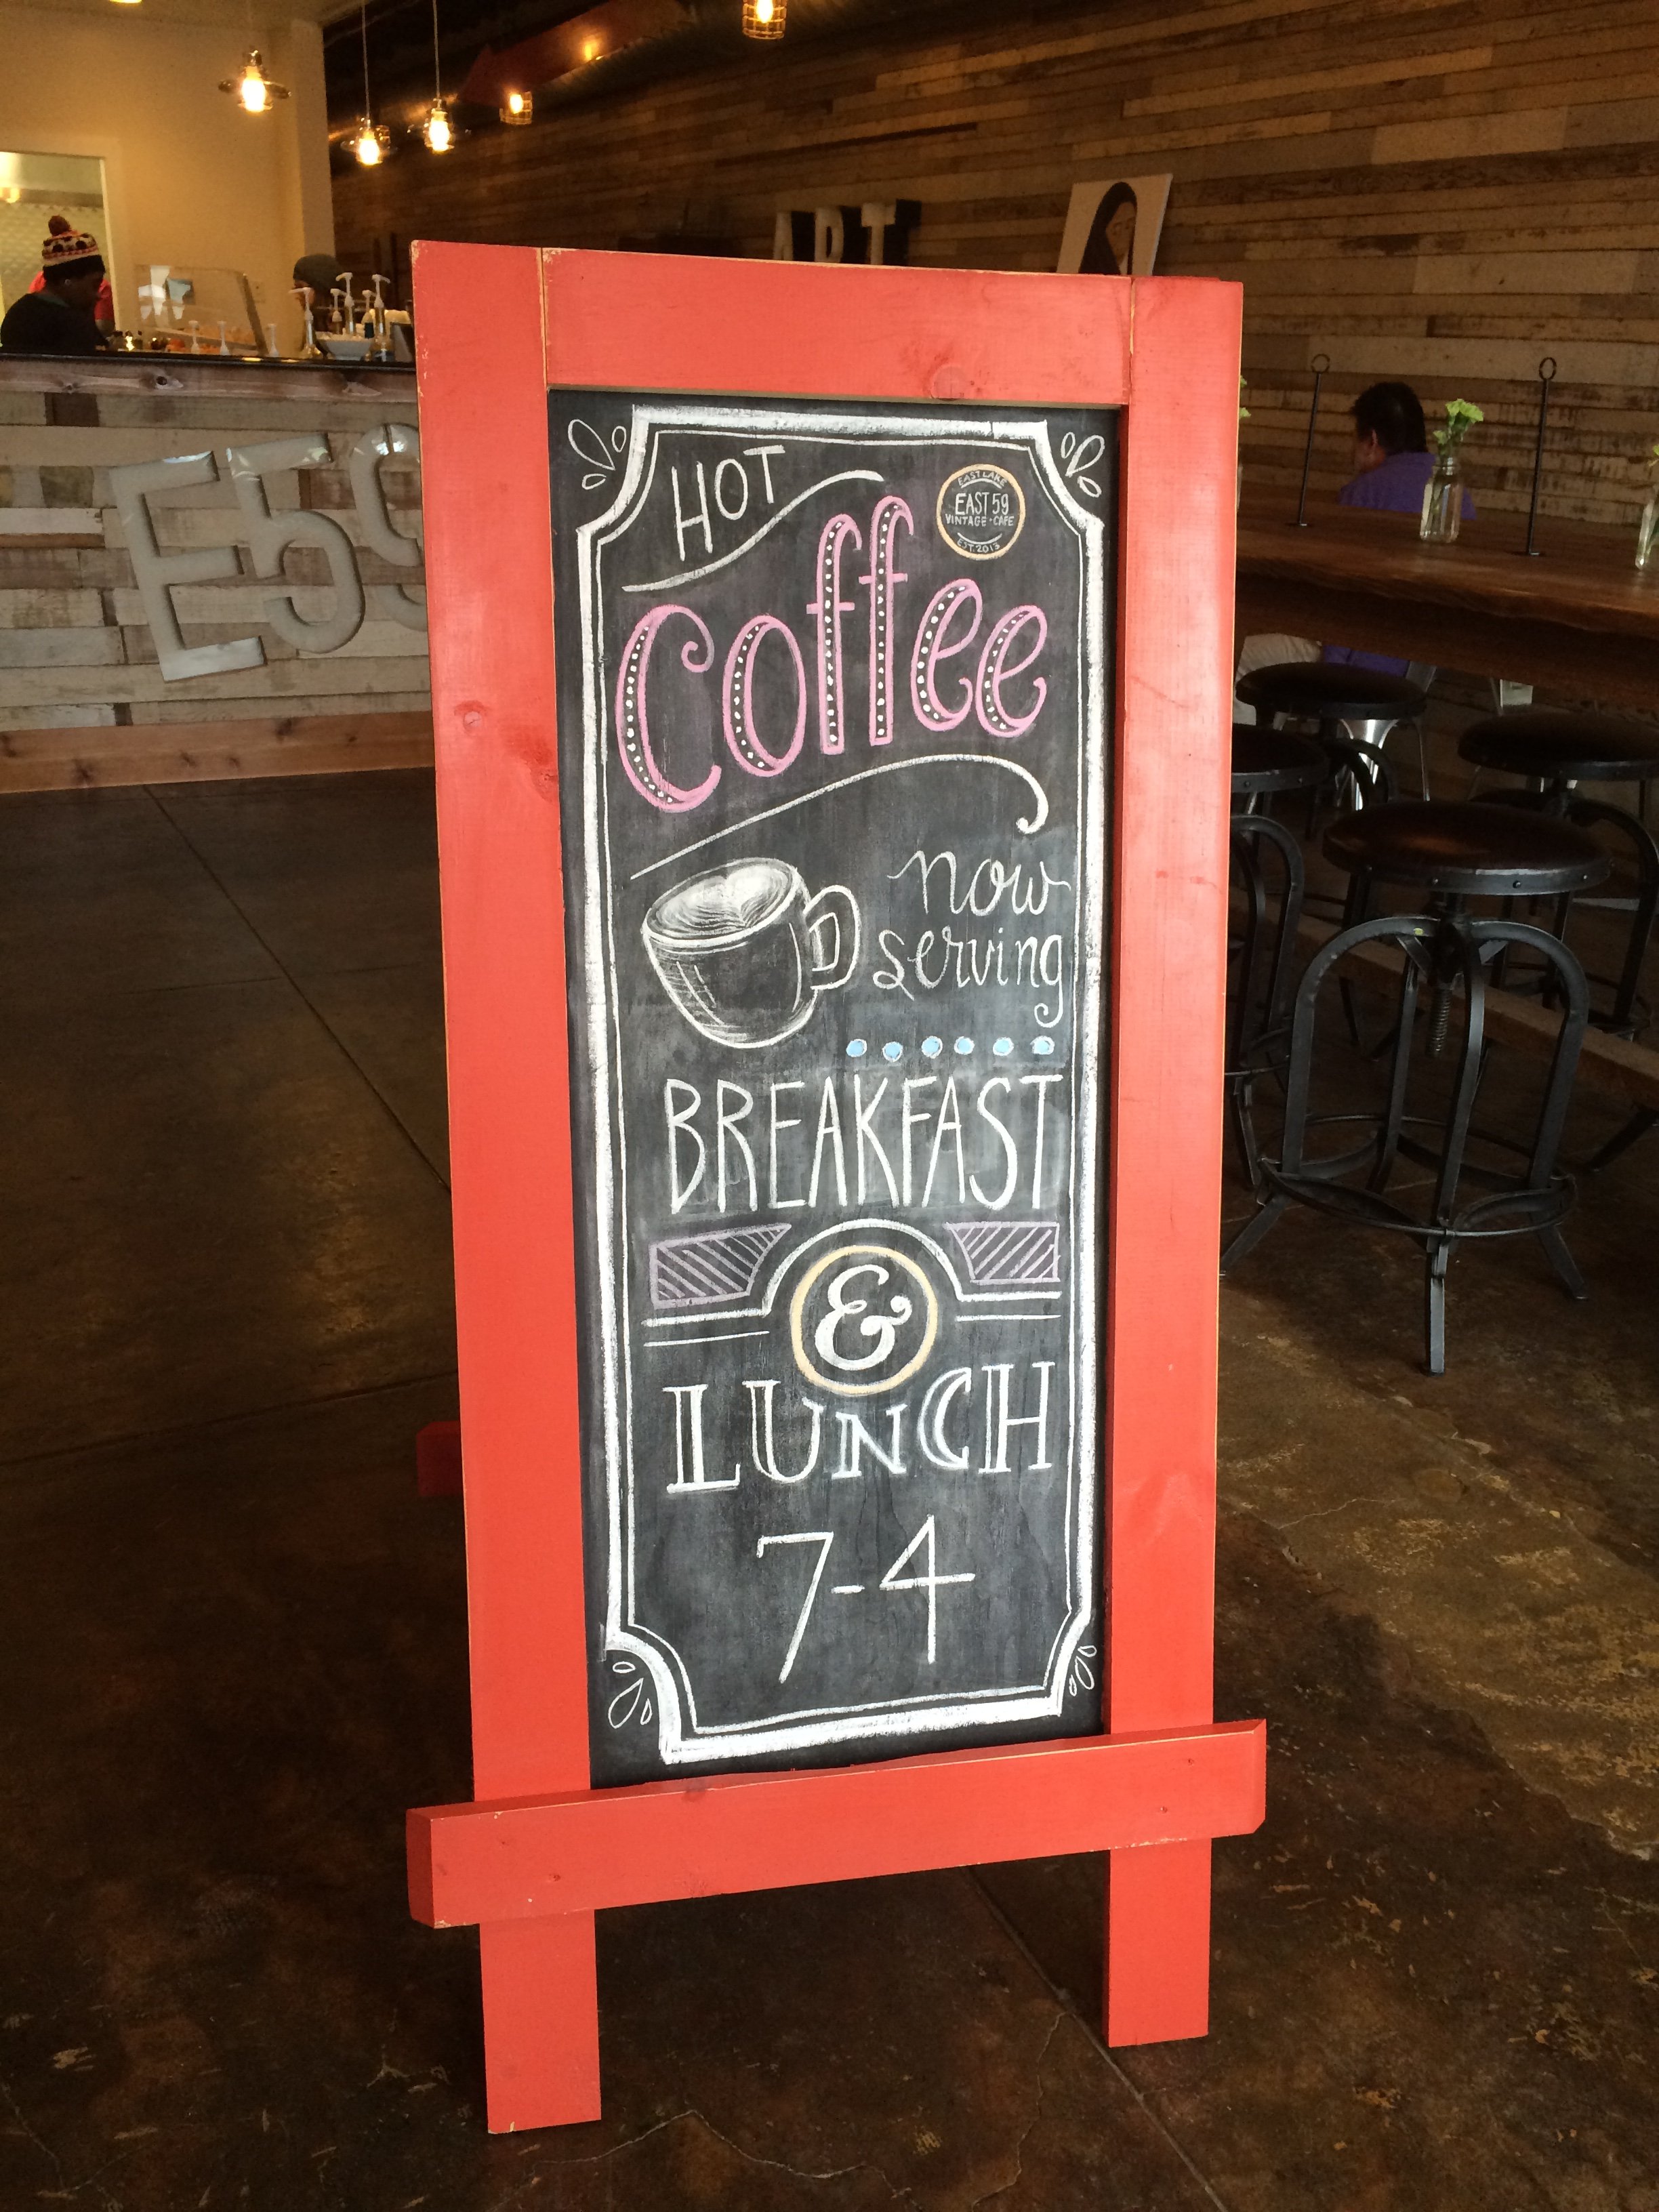 ART
E59
HOT
EAST LAKE
EAST 59
VINTAGE • CAFE
EST. 2013
coffee
now
serving
BREAKFAST
&
LUNCH
7-4